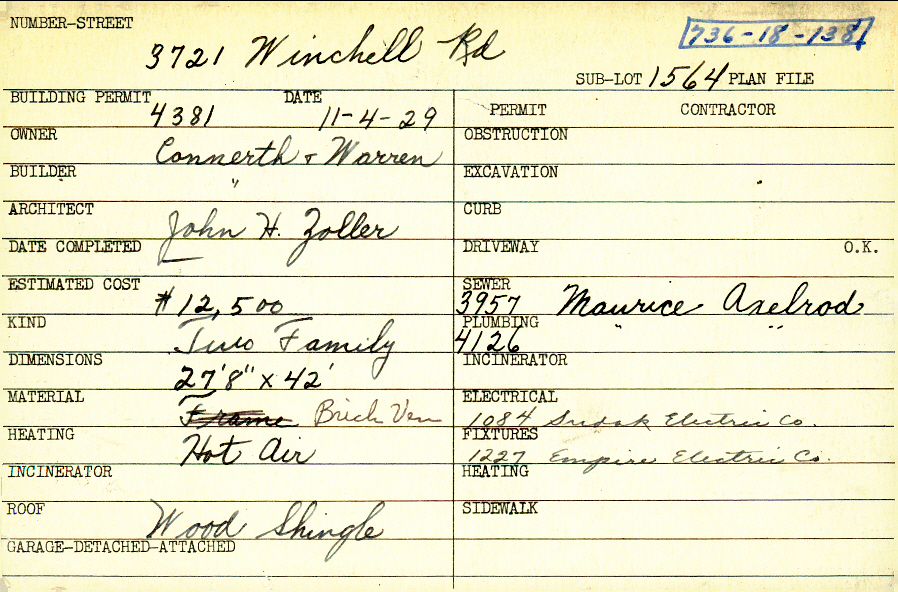 NUMBER-STREET
3721 Winchell Rd
736-18-138
SUB-LOT 1564 PLAN FILE
BUILDING PERMIT 4381 DATE 11-4-29
PERMIT CONTRACTOR
OWNER Connerth & Warren
OBSTRUCTION
BUILDER "
EXCAVATION
ARCHITECT John H. Zoller
CURB
DATE COMPLETED
DRIVEWAY O.K.
ESTIMATED COST $12,500
SEWER 3957 Maurice Axelrod
KIND Two Family
PLUMBING 4126 " "
DIMENSIONS 27'8" x 42'
INCINERATOR
MATERIAL Frame Brick Ven
ELECTRICAL 1084 Electric Co.
HEATING Hot Air
FIXTURES 1227 Empire Electric Co.
INCINERATOR
HEATING
ROOF Wood Shingle
SIDEWALK
GARAGE-DETACHED-ATTACHED